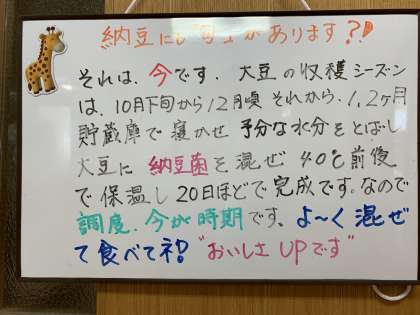 納豆にも旬があります?!
それは、今です。大豆の収穫シーズン
は、10月下旬から12月頃 それから、1,2ヶ月
貯蔵庫で寝かせ 予分な水分をとばし
大豆に 納豆菌を混ぜ 40℃前後
で保温し20日ほどで完成です。なので
調度、今が時期です、よ〜く混ぜ
て食べてネ! "おいしさUPです"